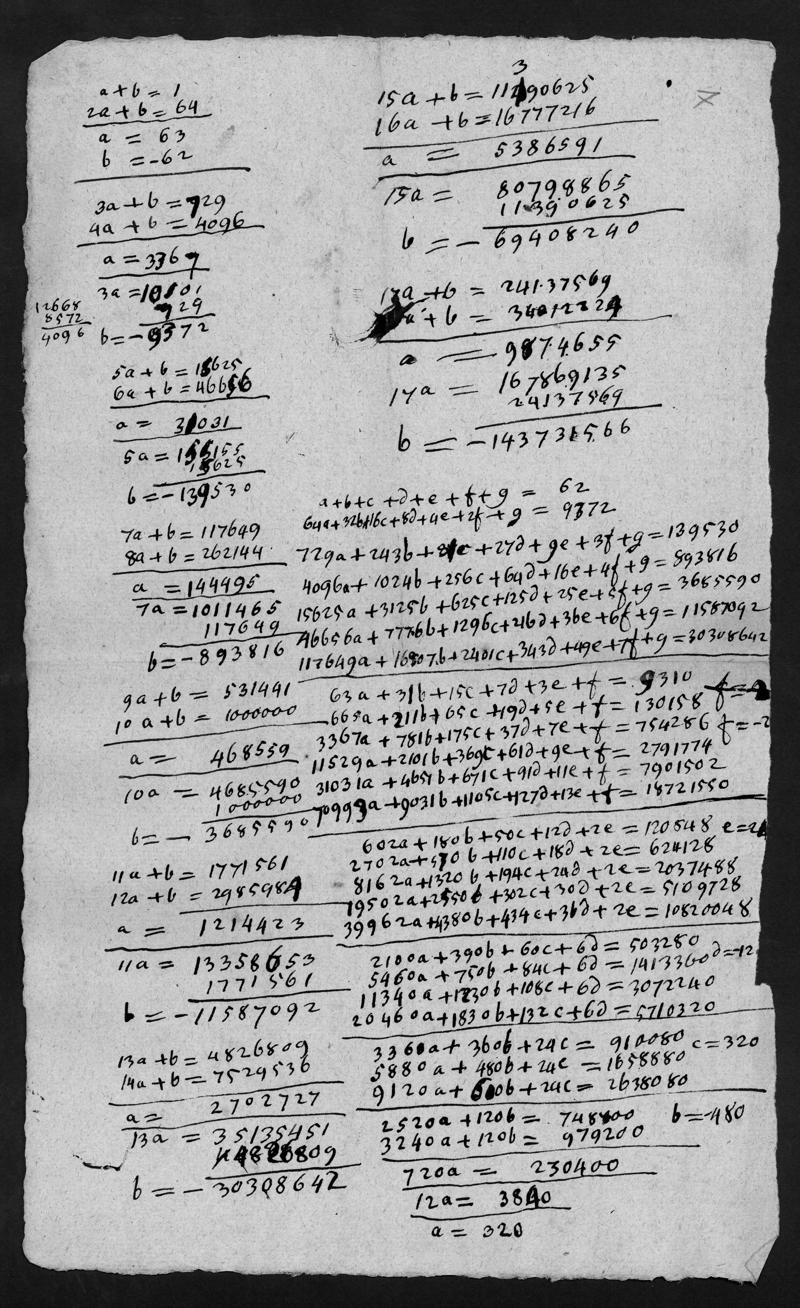 a + b = 1
2a + b = 64
a = 63
b = -62
3a + b = 729
4a + b = 4096
a = 3367
3a = 10101
729
12668
8572
4096
b = - 9372
5a + b = 15625
6a + b = 46656
a = 31031
5a = 155155
15625
b = - 139530
7a + b = 117649
8a + b = 262144
a = 144495
7a = 1011465
117649
b = - 893816
9a + b = 531441
10a + b = 1000000
a = 468559
10a = 4685590
1000000
b = - 3685590
11a + b = 1771561
12a + b = 2985984
a = 1214423
11a = 13358653
1771561
b = - 11587092
13a + b = 4826809
14a + b = 7529536
a = 2702727
13a = 35135451
4826809
b = - 30308642
3
15a + b = 11390625
16a + b = 16777216
a = 5386591
15a = 80798865
11390625
b = - 69408240
17a + b = 24137569
a + b = 34012224
a = 9874655
17a = 167869135
24137569
b = - 143731566
a + b + c + d + e + f + g = 62
64a + 32b + 16c + 8d + 4e + 2f + g = 9372
729a + 243b + 81c + 27d + 9e + 3f + g = 139530
4096a + 1024b + 256c + 64d + 16e + 4f + g = 893816
15625a + 3125b + 625c + 125d + 25e + 5f + g = 3685590
46656a + 7776b + 1296c + 216d + 36e + 6f + g = 11587092
117649a + 16807b + 2401c + 343d + 49e + 7f + g = 30308642
63a + 31b + 15c + 7d + 3e + f = 9310
665a + 211b + 65c + 19d + 5e + f = 130158
3367a + 781b + 175c + 37d + 7e + f = 754286 f = -2
11529a + 2101b + 369c + 61d + 9e + f = 2791774
31031a + 4651b + 671c + 91d + 11e + f = 7901502
70993a + 9031b + 1105c + 127d + 13e + f = 18721550
602a + 180b + 50c + 12d + 2e = 120848 e = 24
2702a + 570b + 110c + 18d + 2e = 624128
8162a + 1320b + 194c + 24d + 2e = 2037488
19502a + 2550b + 302c + 30d + 2e = 5109728
39962a + 4380b + 434c + 36d + 2e = 10820048
2100a + 390b + 60c + 6d = 503280
5460a + 750b + 84c + 6d = 1413360 d = -12
11340a + 1230b + 108c + 6d = 3072240
20460a + 1830b + 132c + 6d = 5710320
3360a + 360b + 24c = 910080 c = 320
5880a + 480b + 24c = 1658880
9120a + 600b + 24c = 2638080
2520a + 120b = 748800 b = -480
3240a + 120b = 979200
720a = 230400
12a = 3840
a = 320